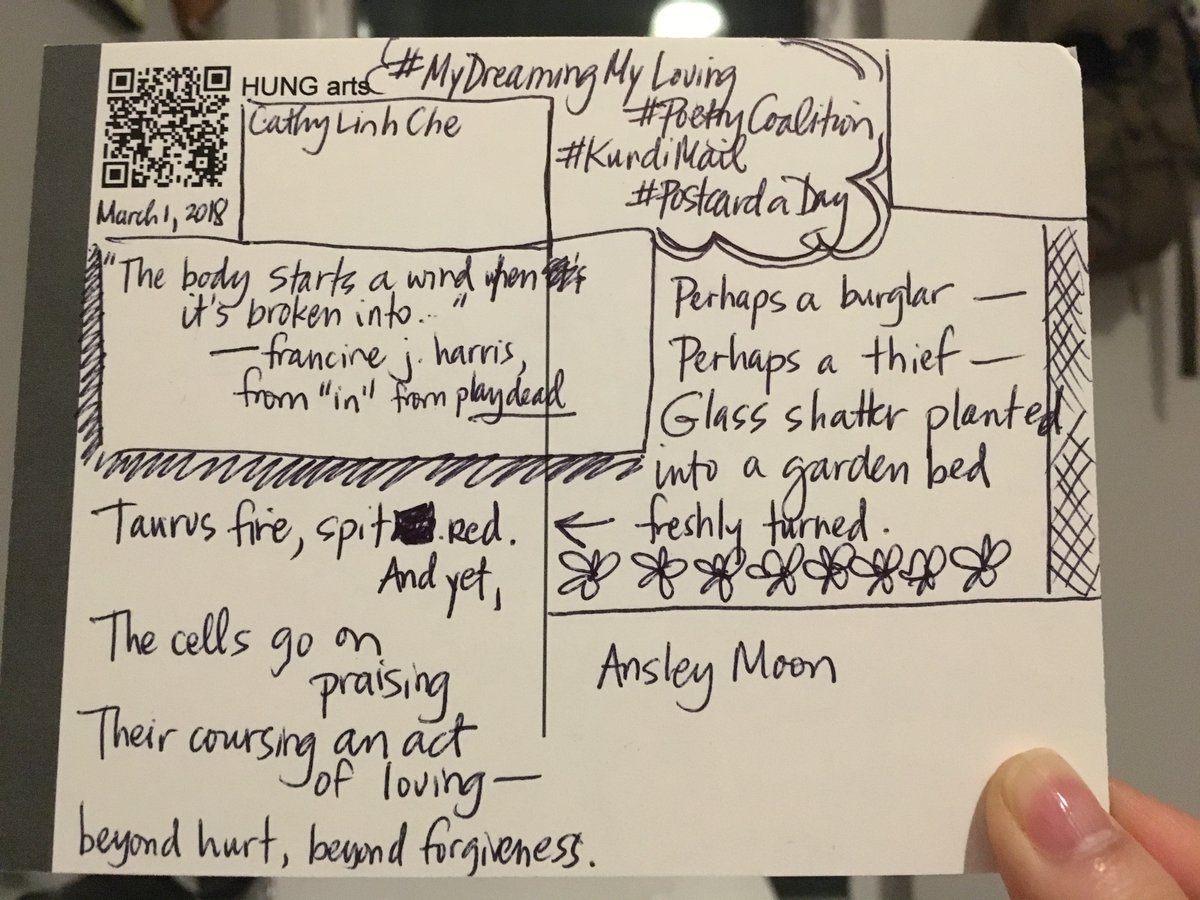 HUNG arts
Cathy Linh Che
March 1, 2018
#MyDreamingMyLoving
#PoetryCoalition
#KundiMail
#PostcardaDay
"The body starts a wind when it's
it's broken into..."
— francine j. harris,
from "in" from playdead
Perhaps a burglar —
Perhaps a thief —
Glass shatter planted
into a garden bed
← freshly turned.
Taurus fire, spit red.
And yet,
The cells go on
praising
Their coursing an act
of loving —
beyond hurt, beyond forgiveness.
Ansley Moon